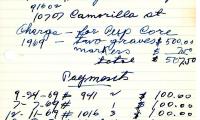 91002
10707 Camorilla st
Charge - for Pup Care
1969 - two graves $500.00
markers $ 7.50
total $ 507.50
Payment
9-24-69 # 941 2 $ 100.00
7-69 # 1 $ 100.00
12-11-69 # 1016 3 $ 100.00